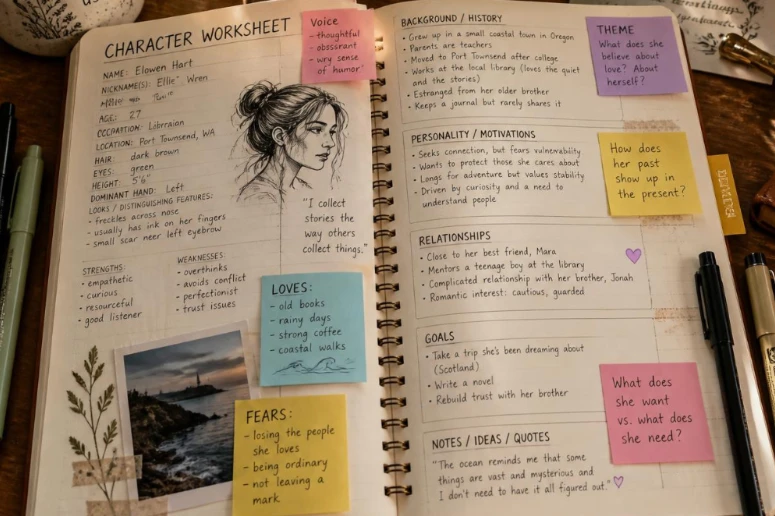 CHARACTER WORKSHEET
NAME: Elowen Hart
NICKNAME(S): Ellie Wren
AGE: 27
OCCPATION: Librraion
LOCATION: Port Townsend, WA
HAIR: dark brown
EYES: green
HEIGHT: 5'6"
DOMINANT HAND: Left
LOOKS / DISTINGUISHING FEATURES:
- freckles across nose
- usually has ink on her fingers
- small scar neer left eyebrow
STRENGTHS:
• empathetic
• curious
• resourceful
• good listener
WEAKNESSES:
• overthinks
• avoids conflict
• perfectionist
• trust issues
Voice
- thoughtful
- obssrant
- wry sense
of humor"
"I collect
stories the
way others
collect things."
LOVES:
- old books
- rainy days
- strong coffee
- coastal walks
FEARS:
- losing the people
she loves
- being ordinary
- not leaving a
mark
BACKGROUND / HISTORY
• Grew up in a small coastal town in Oregon
• Parents are teachers
• Moved to Port Townsend after college
• Works at the local library (loves the quiet
and the stories)
• Estranged from her older brother
• Keeps a journal but rarely shares it
THEME
What does she
believe about
love? About
herself?
PERSONALITY / MOTIVATIONS
• Seeks connection, but fears vulnerability
• Wants to protect those she cares about
• Longs for adventure but values stability
• Driven by curiosity and a need to
understand people
How does
her past
show up in
the present?
RELATIONSHIPS
• Close to her best friend, Mara
• Mentors a teenage boy at the library
• Complicated relationship with her brother, Jonah
• Romantic interest: cautious, guarded
GOALS
• Take a trip she's been dreaming about
(Scotland)
• Write a novel
• Rebuild trust with her brother
What does
she want
vs. what does
she need?
NOTES / IDEAS / QUOTES
"The ocean reminds me that some
things are vast and mysterious and
I don't need to have it all figured out."